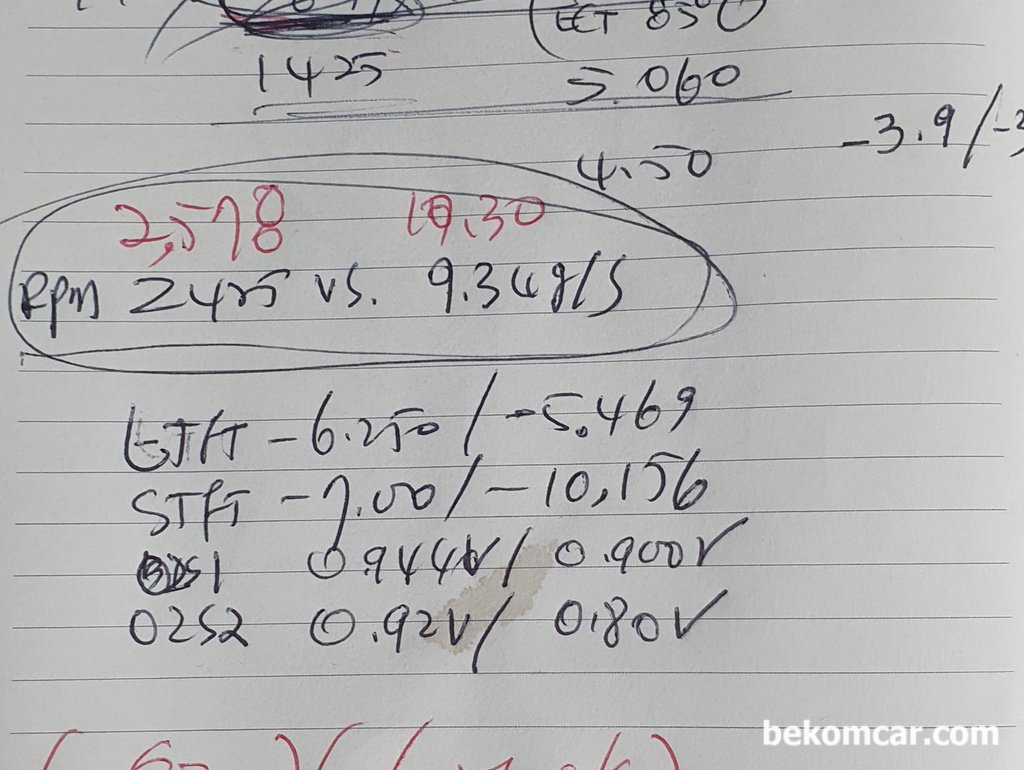 ECT 85°C
1425 5.060
4.50 -3.9/-3
2,578 10.30
Rpm 2425 vs. 9.34g/s
LTFT -6.250/-5.469
STFT -7.00/-10,156
O2S1 0.944V/0.900V
O2S2 0.92V/0.80V
bekomcar.com